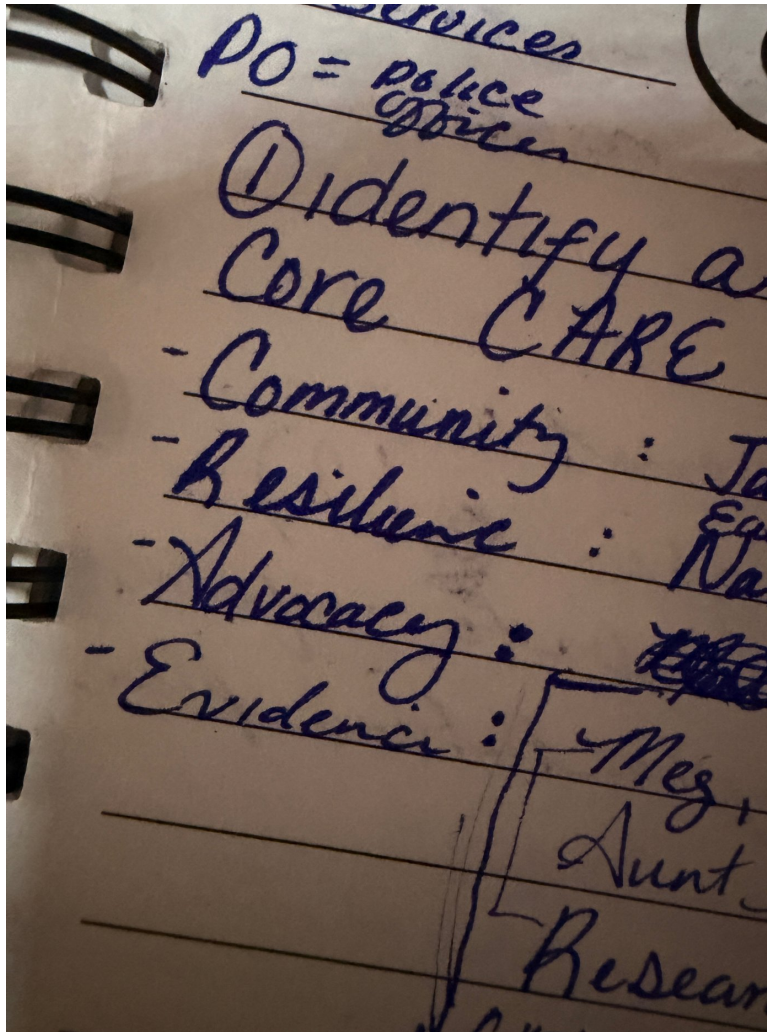 Services
PO = police
officer
① identify a
Core CARE
- Community : Ja
- Resilienc :
Na
- Advocacy :
- Evidence :
Meg,
Aunt
Resear